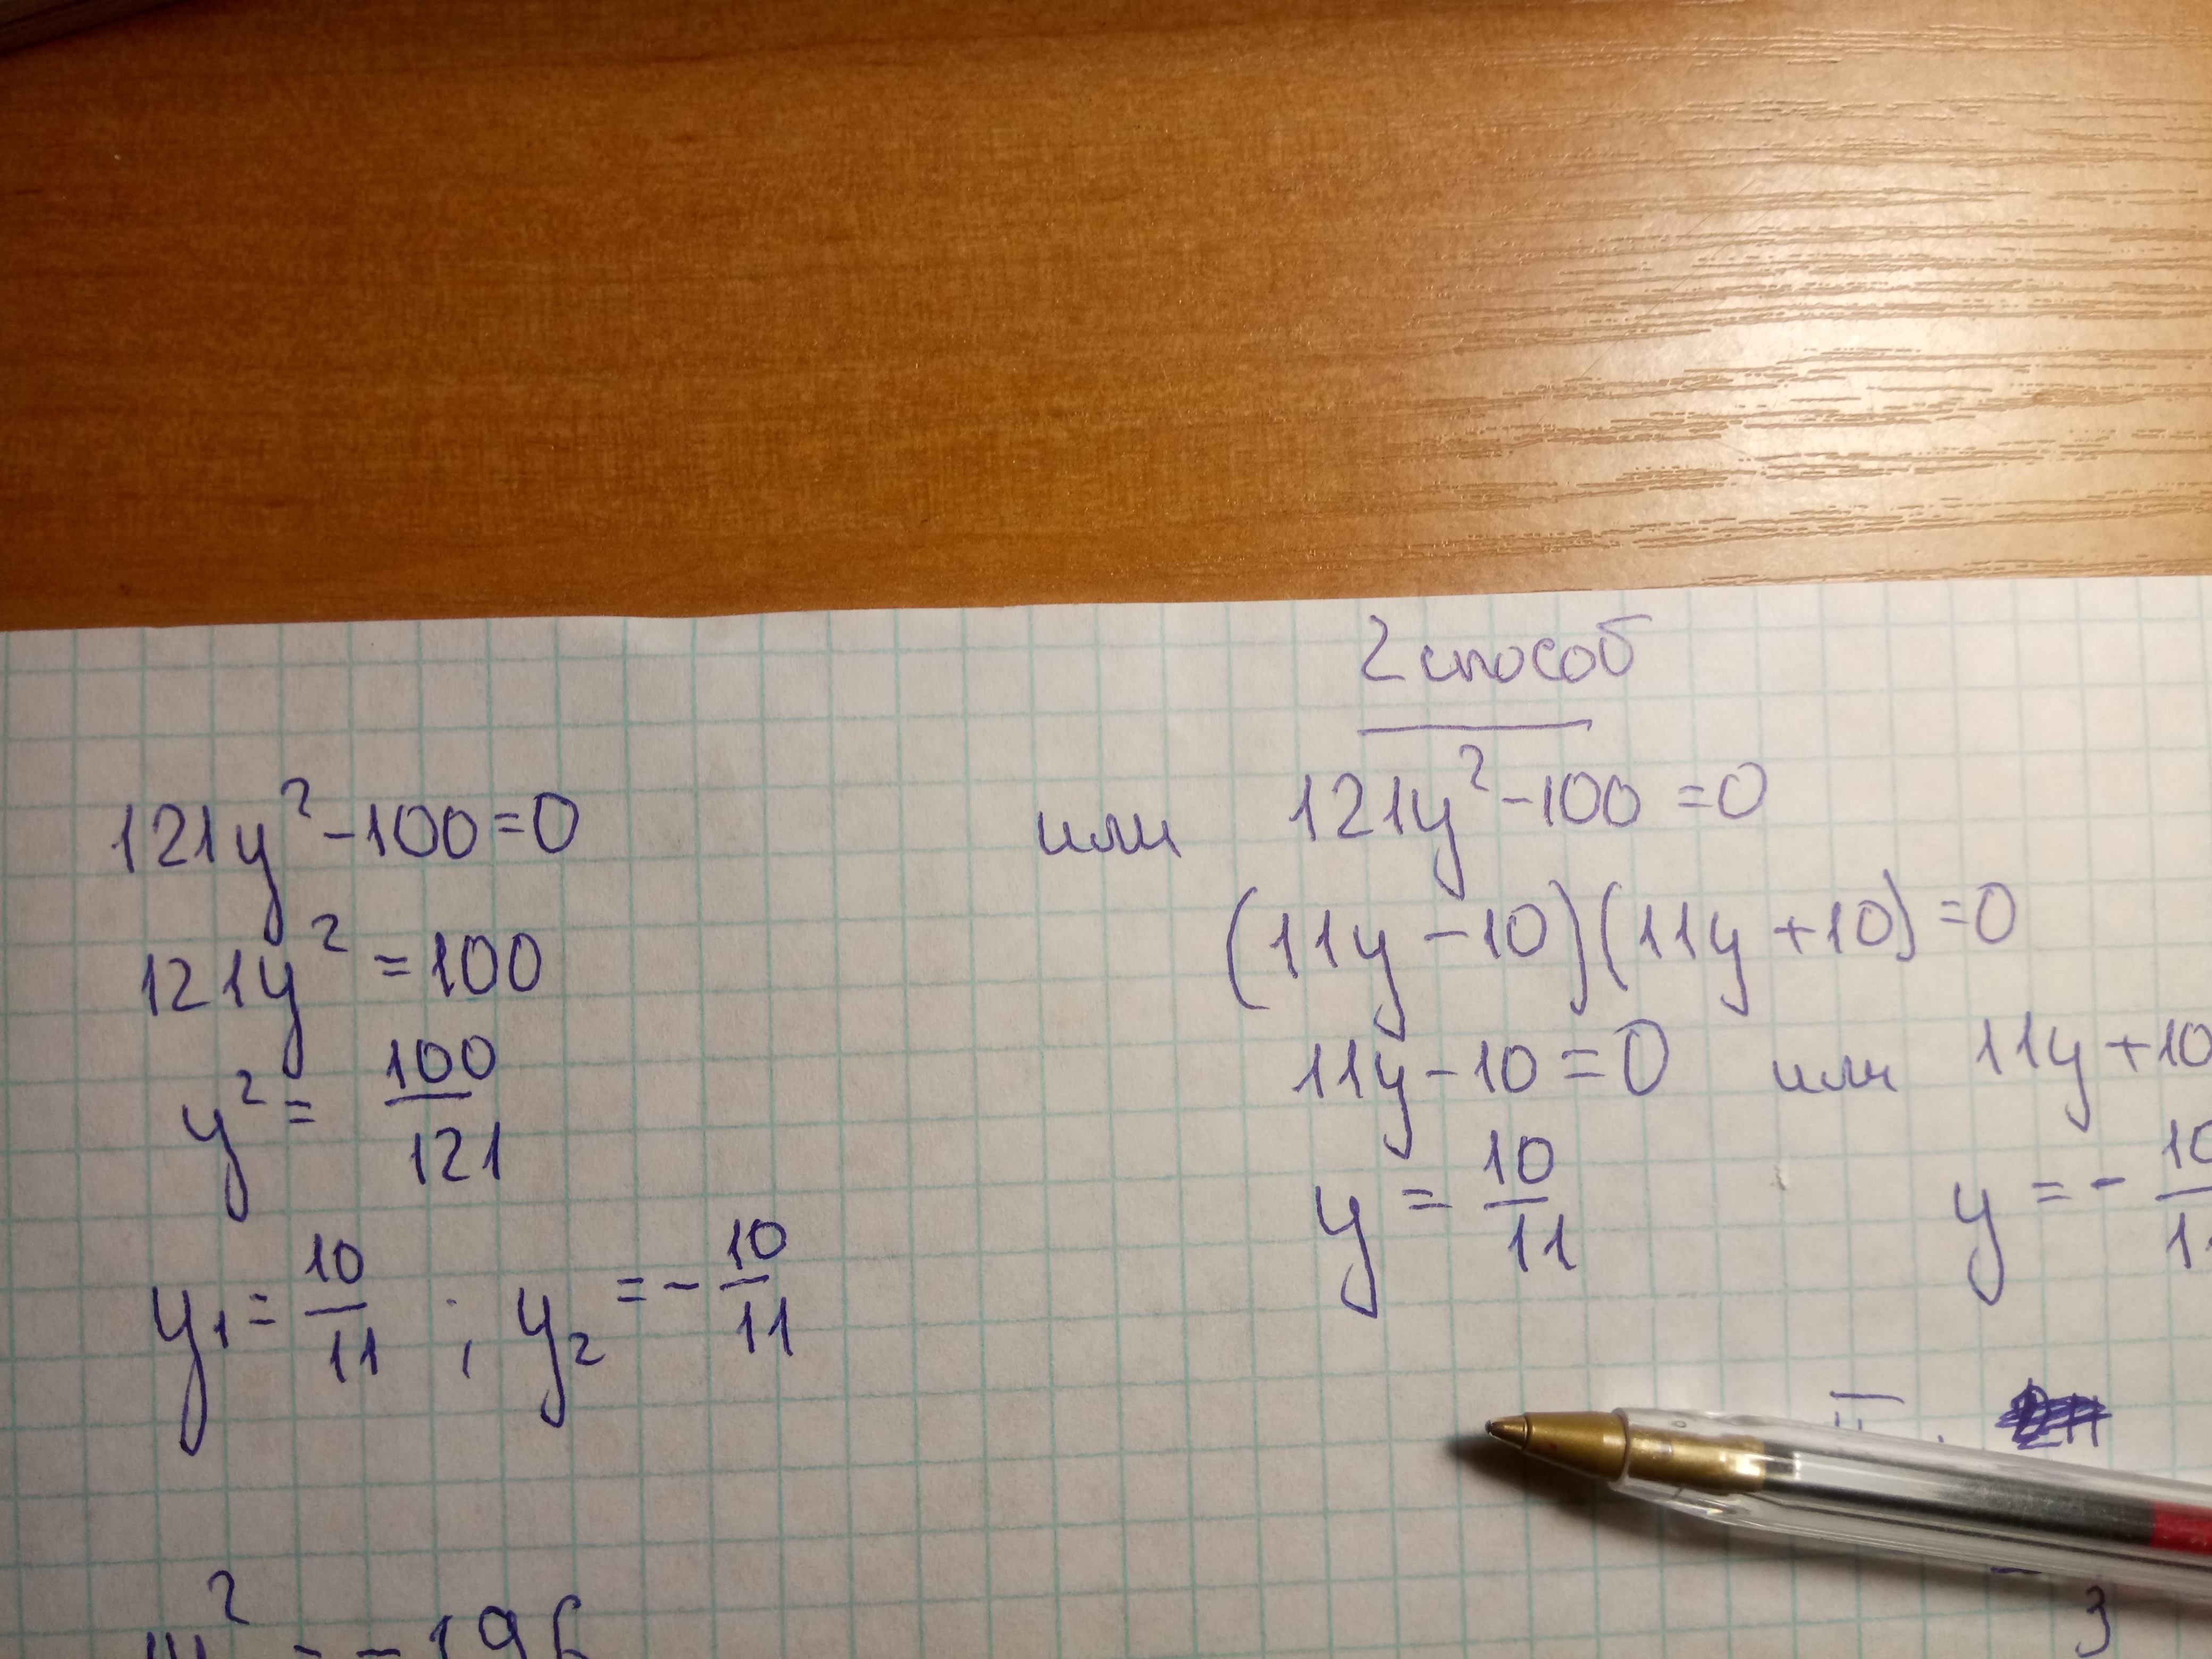 121y² - 100 = 0
121y² = 100
y² = 100/121
y₁ = 10/11 ; y₂ = - 10/11
2 способ
или 121y² - 100 = 0
(11y - 10)(11y + 10) = 0
11y - 10 = 0 или 11y + 10
y = 10/11 y = - 10/11
3